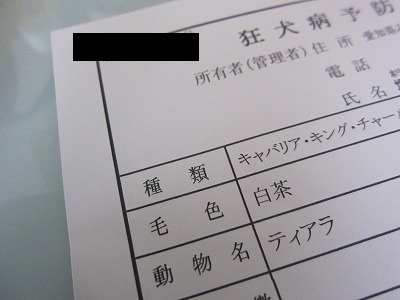 狂犬病予防
所有者(管理者)住所 愛知県
電話
氏名
種類 キャバリア・キング・チャール
毛色 白茶
動物名 ティアラ